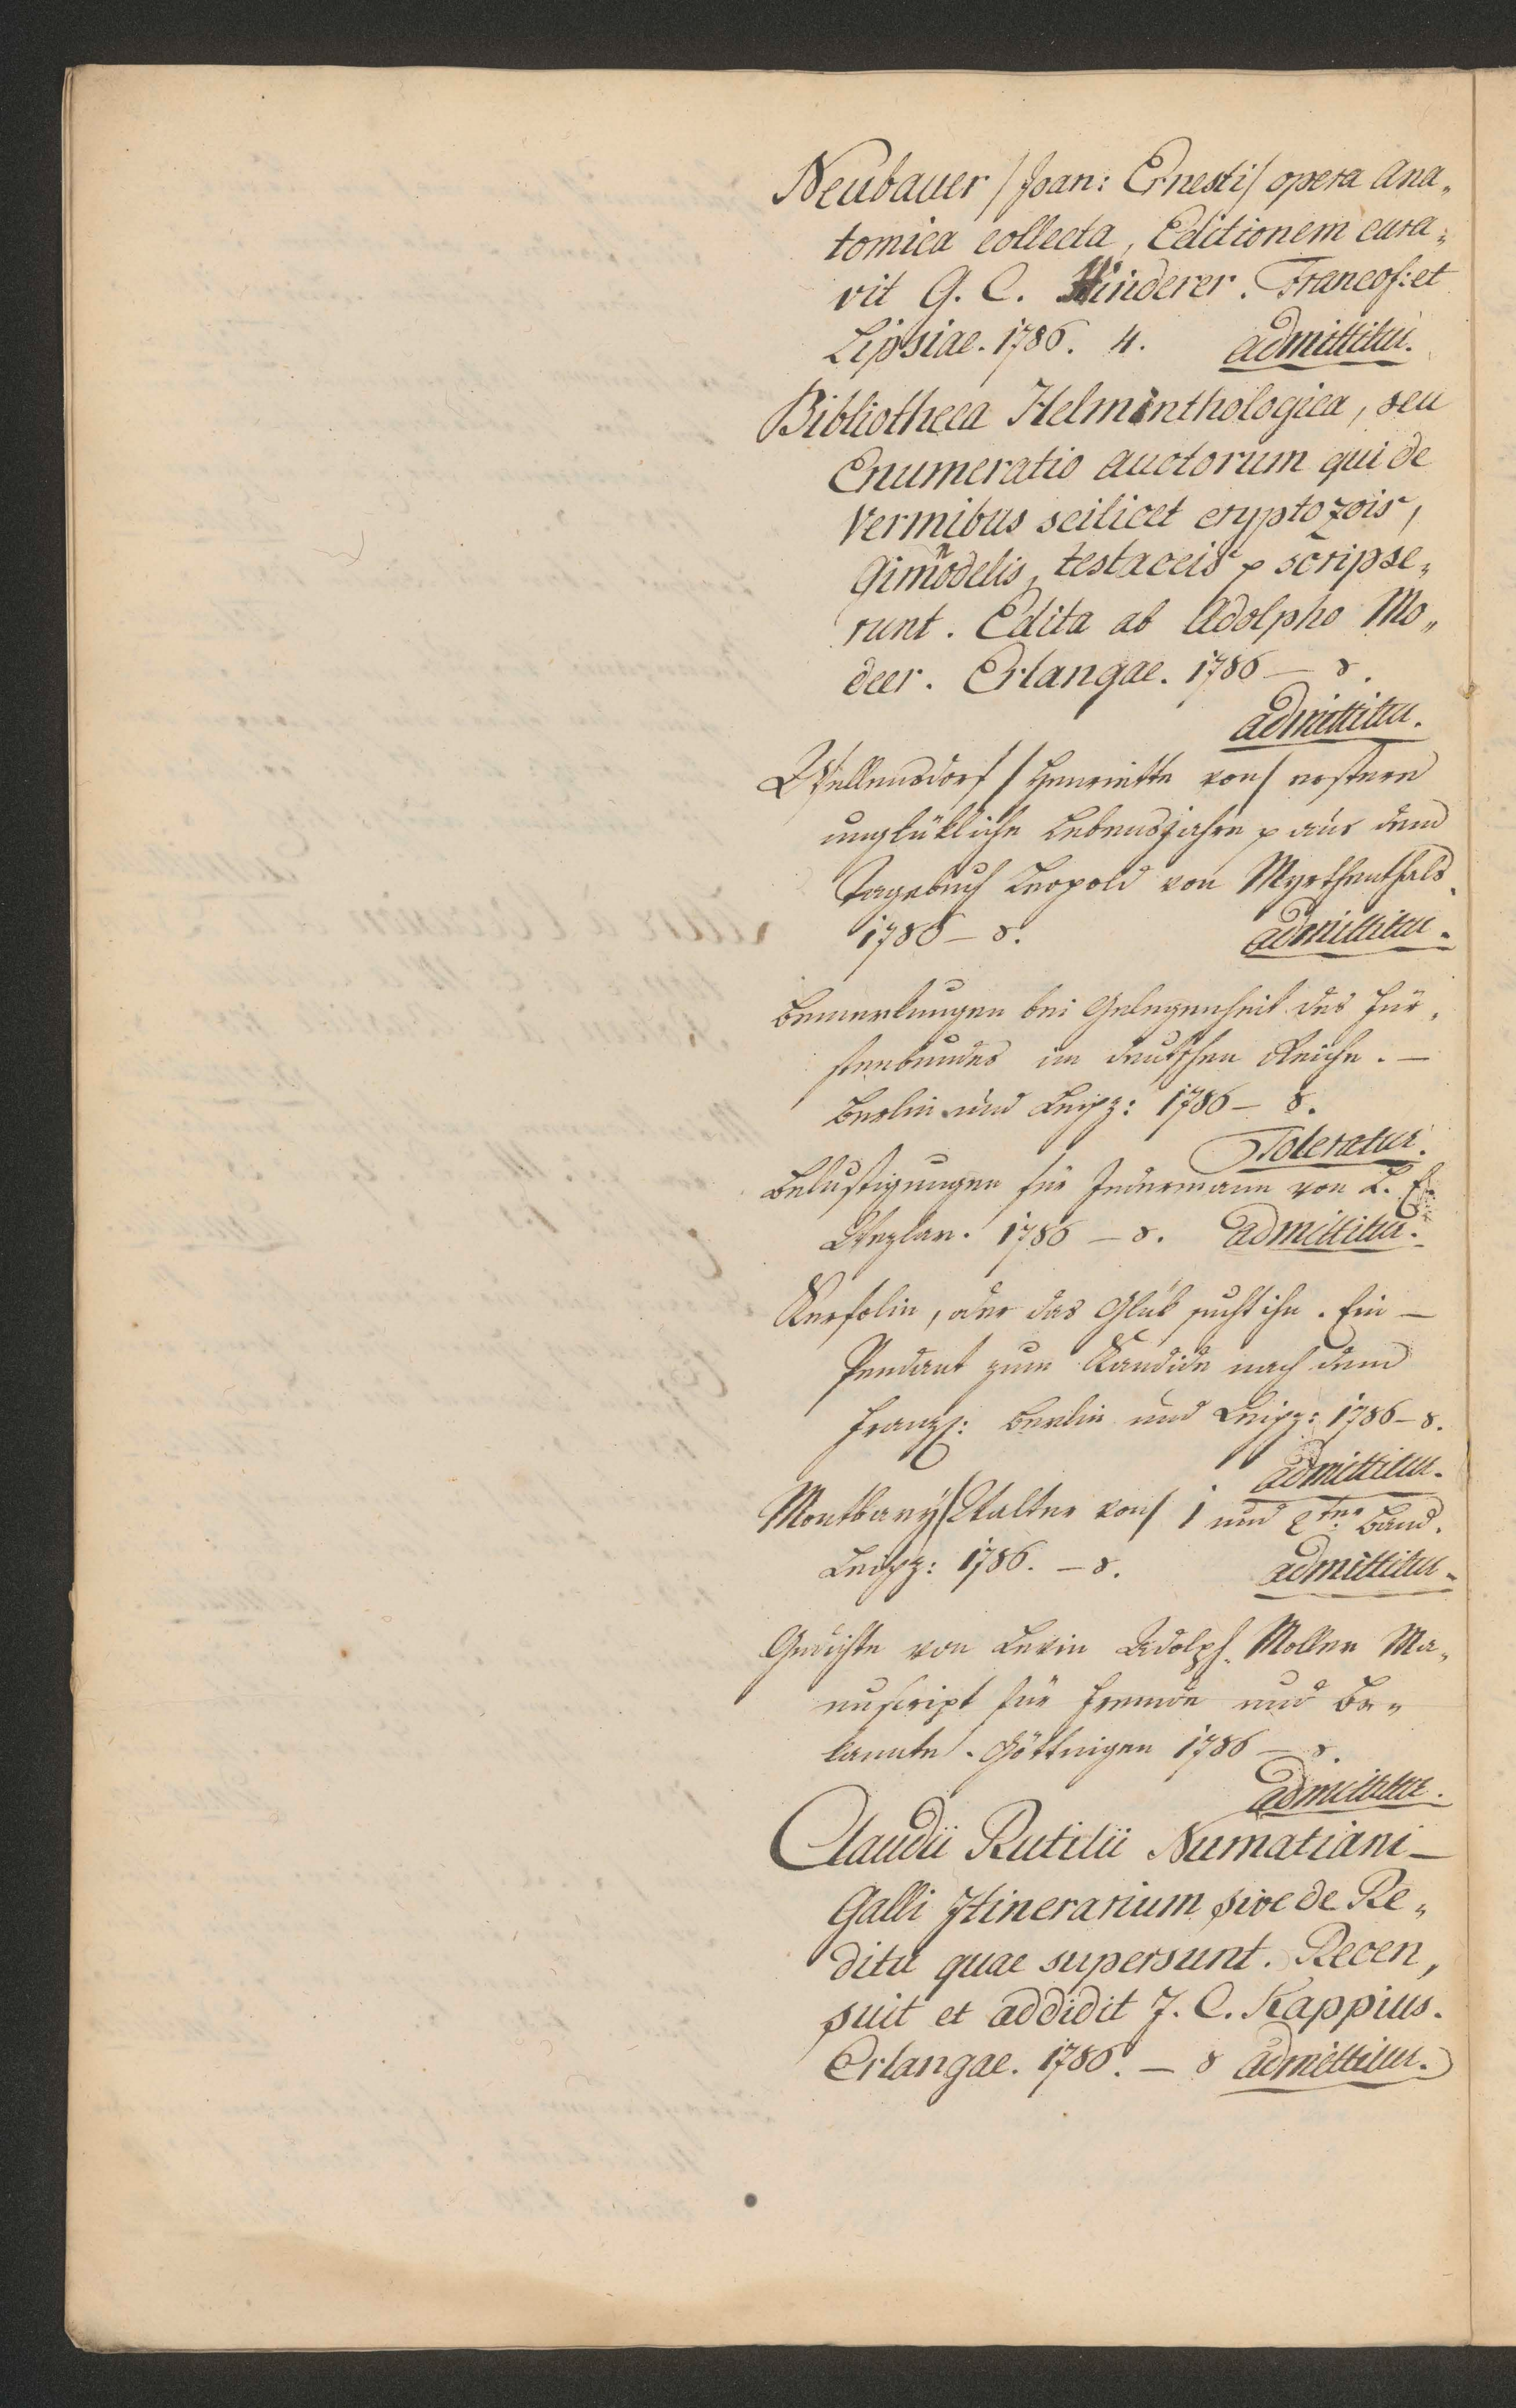 Neubauer / Joan: Ernesti / opera ana„
tomica collecta, Editionem cura„
vit G. C. Hinderer. Francof: et
Lipsiae. 1786. 4. admittitur.
Bibliotheca Helminthologica, seu
Enumeratio auctorum qui de
Vermibus scilicet cryptozois,
Gimnodelis, testaceis p scripse„
runt. Edita ab Adolpho Mo„
deer. Erlangae. 1786 – 8.
admittitur.
Wellensdorf / Henriette von / erstere
unglükliche Lebensjahre p aus dem
Tagebuch Leopold von Myrthenthals.
1786 – 8. admittitur.
Bemerkungen bei Gelegenheit des Für„
stenbundes im deutschen Reiche. –
Berlin und Leipz: 1786 – 8.
Toleratur.
Belustigungen für Jedermann von L. E.
Wezlar. 1786 – 8. admittitur.
Kerfolin, oder das Glük sucht ihn. Ein –
Pendant zum Kandide nach dem
Franz: Berlin und Leipz: 1786 – 8.
admittitur.
Montbary / Walter von / 1 und 2ter Band.
Leipz: 1786. – 8. admittitur.
Gedichte von Levin Adolph Moller Ma„
nuscript für Freunde und Be„
kannte. Göttingen 1786 – 8.
admittitur.
Claudii Rutilii Numatiani –
Galli Itinerarium sive de Re„
ditu quae supersunt. Recen„
suit et addidit J. C. Kappius.
Erlangae. 1786. – 8 admittitur.